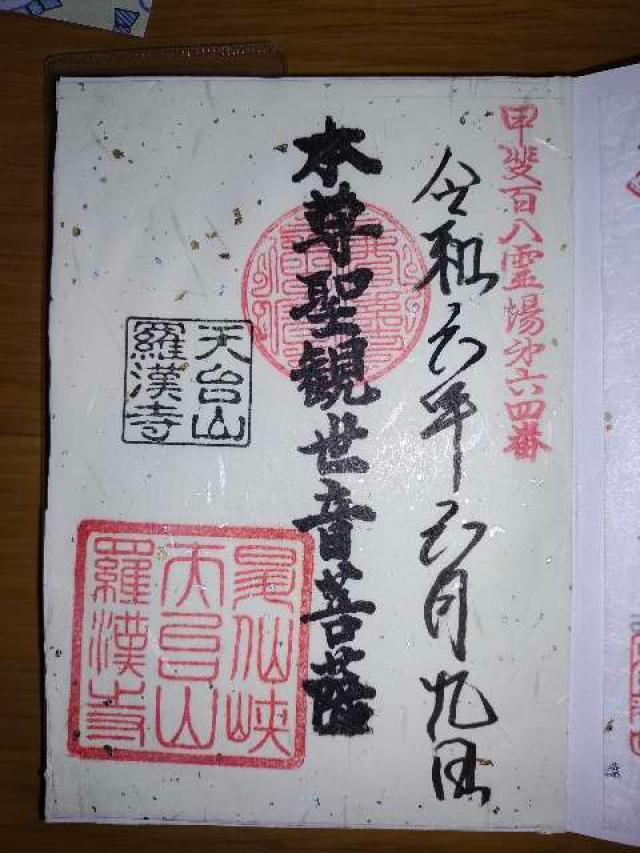 甲斐百八霊場第六四番
令和六年五月九日
本尊聖観世音菩薩
天台山
羅漢寺
昇仙峡
天台山
羅漢寺